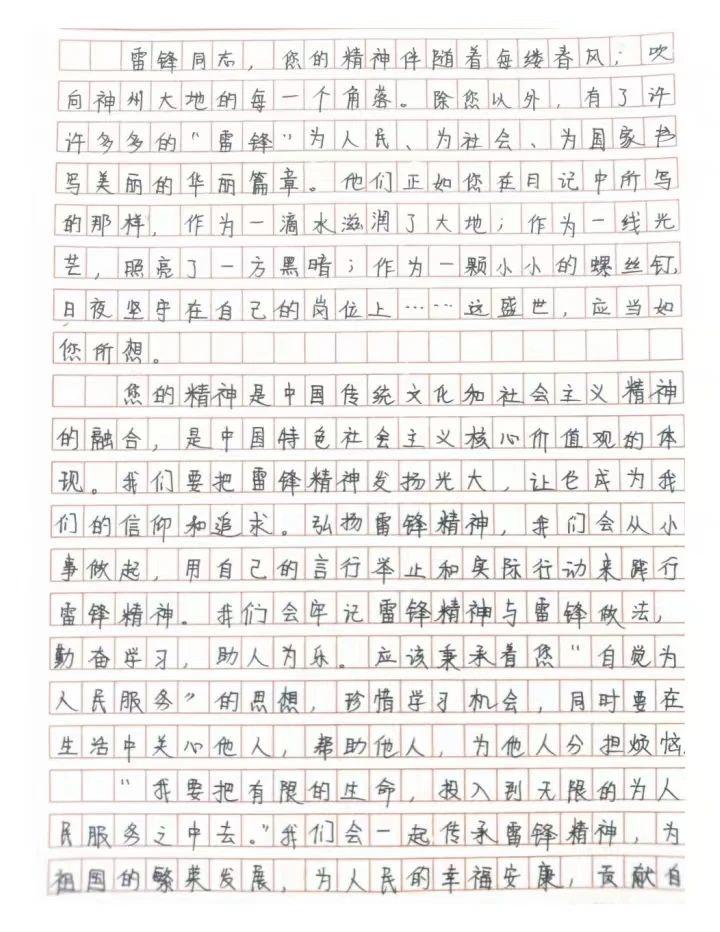 雷锋同志，您的精神伴随着每缕春风；吹
向神州大地的每一个角落。除您以外，有了许
许多多的“雷锋”为人民、为社会、为国家书
写美丽的华丽篇章。他们正如您在日记中所写
的那样，作为一滴水滋润了大地；作为一线光
芒，照亮了一方黑暗；作为一颗小小的螺丝钉，
日夜坚守在自己的岗位上……这盛世，应当如
您所想。
您的精神是中国传统文化和社会主义精神
的融合，是中国特色社会主义核心价值观的体
现。我们要把雷锋精神发扬光大，让它成为我
们的信仰和追求。弘扬雷锋精神，我们会从小
事做起，用自己的言行举止和实际行动来践行
雷锋精神。我们会牢记雷锋精神与雷锋做法，
勤奋学习，助人为乐。应该秉承着您“自觉为
人民服务”的思想，珍惜学习机会，同时要在
生活中关心他人，帮助他人，为他人分担烦恼.
“我要把有限的生命，投入到无限的为人
民服务之中去。”我们会一起传承雷锋精神，为
祖国的繁荣发展，为人民的幸福安康，贡献自